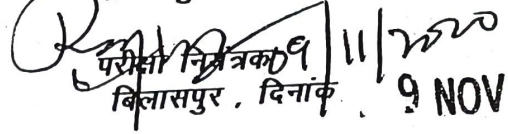 परीक्षा नियंत्रक 09/11/2020
बिलासपुर, दिनांक 9 NOV